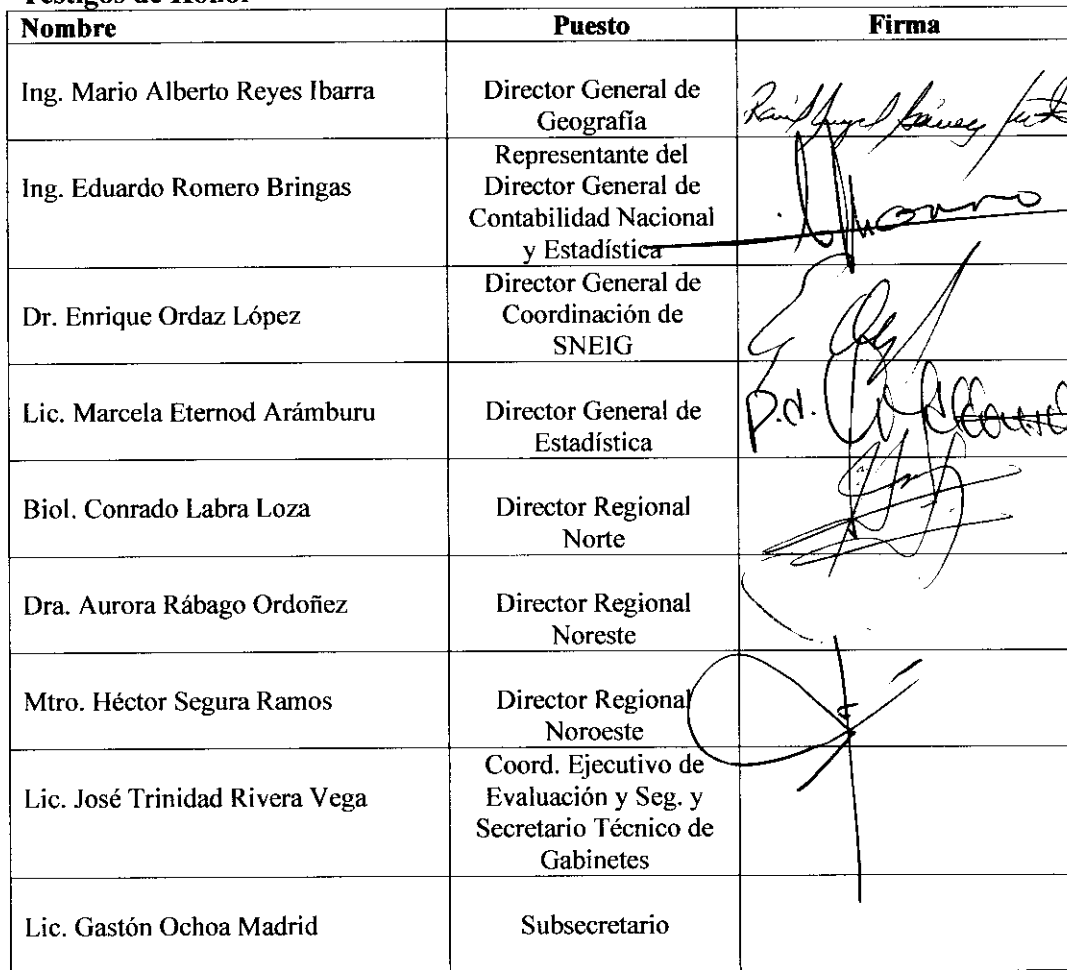 Testigos de Honor
Nombre Puesto Firma
Ing. Mario Alberto Reyes Ibarra
Director General de
Geografía
Ing. Eduardo Romero Bringas
Representante del
Director General de
Contabilidad Nacional
y Estadística
Dr. Enrique Ordaz López
Director General de
Coordinación de
SNEIG
Lic. Marcela Eternod Arámburu
Director General de
Estadística
p.d.
Biol. Conrado Labra Loza
Director Regional
Norte
Dra. Aurora Rábago Ordoñez
Director Regional
Noreste
Mtro. Héctor Segura Ramos
Director Regional
Noroeste
Lic. José Trinidad Rivera Vega
Coord. Ejecutivo de
Evaluación y Seg. y
Secretario Técnico de
Gabinetes
Lic. Gastón Ochoa Madrid
Subsecretario